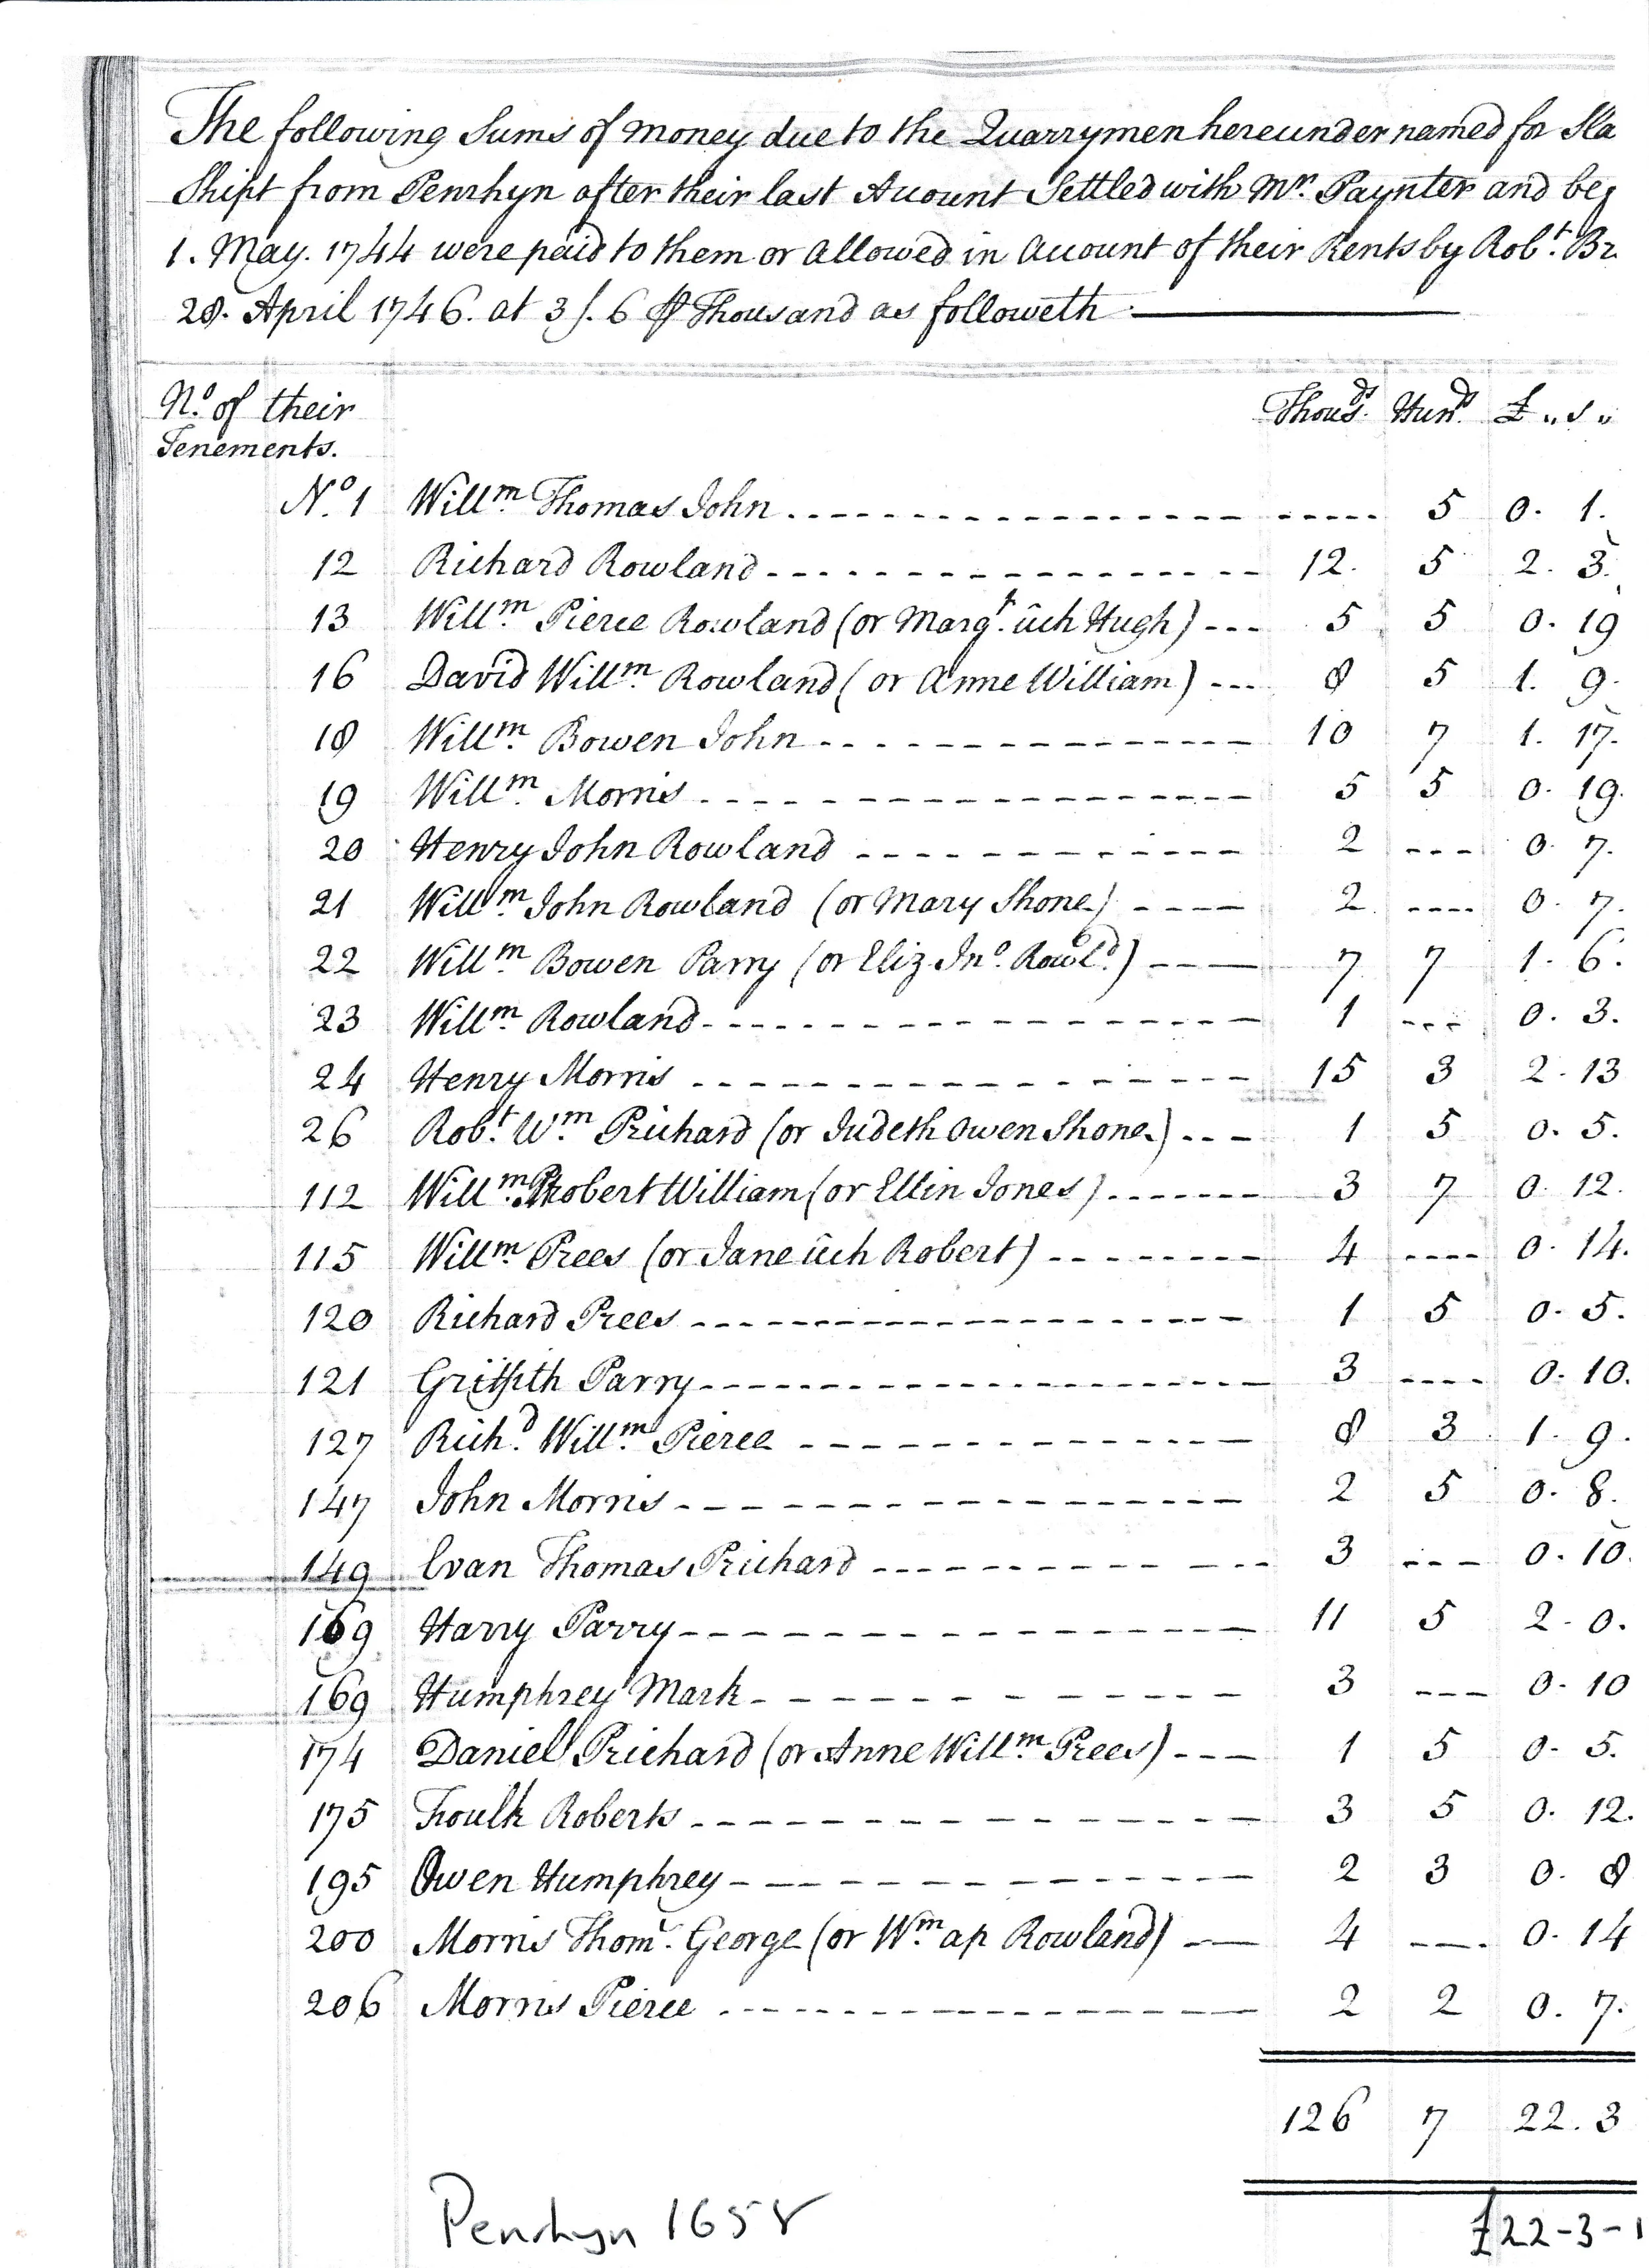 The following Sums of money due to the Quarrymen hereunder named for Sla
Shipt from Penrhyn after their last Account Settled with Mr. Paynter and be
1. May. 1744 were paid to them or allowed in account of their Rents by Robt. Br
28. April 1746. at 3 s. 6 ⅌ Thousand as followeth
No. of their Thouds. Hunds. £ „ s „
Tenements.
No. 1 Willm. Thomas John 5 0. 1.
12 Richard Rowland 12. 5 2. 3.
13 Willm. Pierce Rowland (or Margt. ûch Hugh) 5 5 0. 19
16 David Willm. Rowland (or Anne William) 8 5 1. 9.
18 Willm. Bowen John 10 7 1. 17.
19 Willm. Morris 5 5 0. 19.
20 Henry John Rowland 2 --- 0. 7.
21 Willm. John Rowland (or Mary Shone) 2 ---- 0. 7.
22 Willm. Bowen Parry (or Eliz. Jno. Rowld.) 7 7 1. 6.
23 Willm. Rowland 1 --- 0. 3.
24 Henry Morris 15 3 2. 13
26 Robt. Wm. Prichard (or Judeth Owen Shone) 1 5 0. 5.
112 Willm. Probert William (or Ellin Jones) 3 7 0. 12.
115 Willm. Prees (or Jane ûch Robert) 4 ---- 0. 14.
120 Richard Prees 1 5 0. 5.
121 Griffith Parry 3 ---- 0. 10.
127 Richd. Willm. Pierce 8 3 1. 9.
147 John Morris 2 5 0. 8.
149 Evan Thomas Prichard 3 --- 0. 10.
169 Harry Parry 11 5 2. 0.
169 Humphrey Mark 3 --- 0. 10
174 Daniel Prichard (or Anne Willm. Prees) 1 5 0. 5.
175 Foulk Roberts 3 5 0. 12.
195 Owen Humphrey 2 3 0. 8
200 Morris Thoms. George (or Wm. ap Rowland) 4 --- 0. 14
206 Morris Pierce 2 2 0. 7.
126 7 22. 3
Penrhyn 1658
£22-3-1